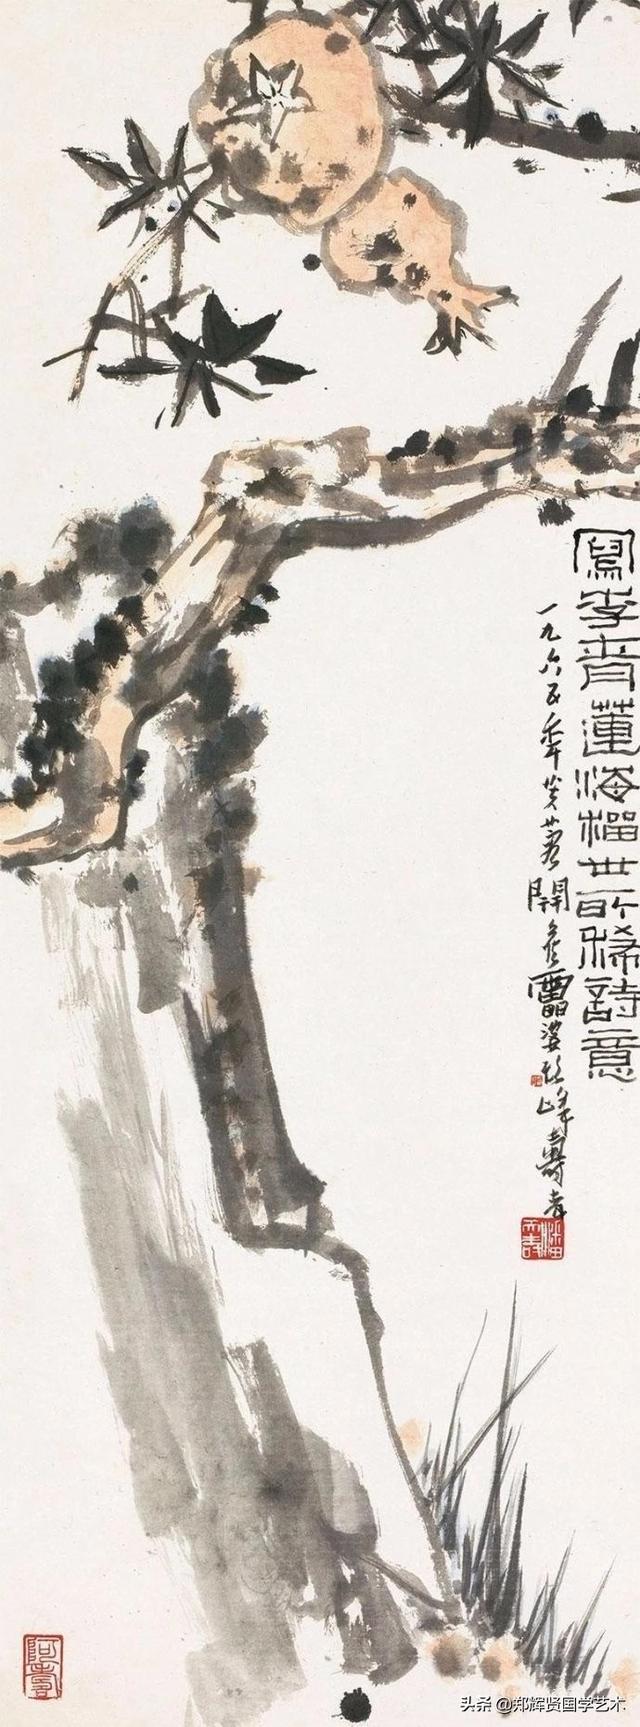 寫李青蓮海榴世所稀詩意
一九六五年芙蓉開候雷婆頭峰壽者
潘天壽
阿壽
头条 @郑辉贤国学艺术